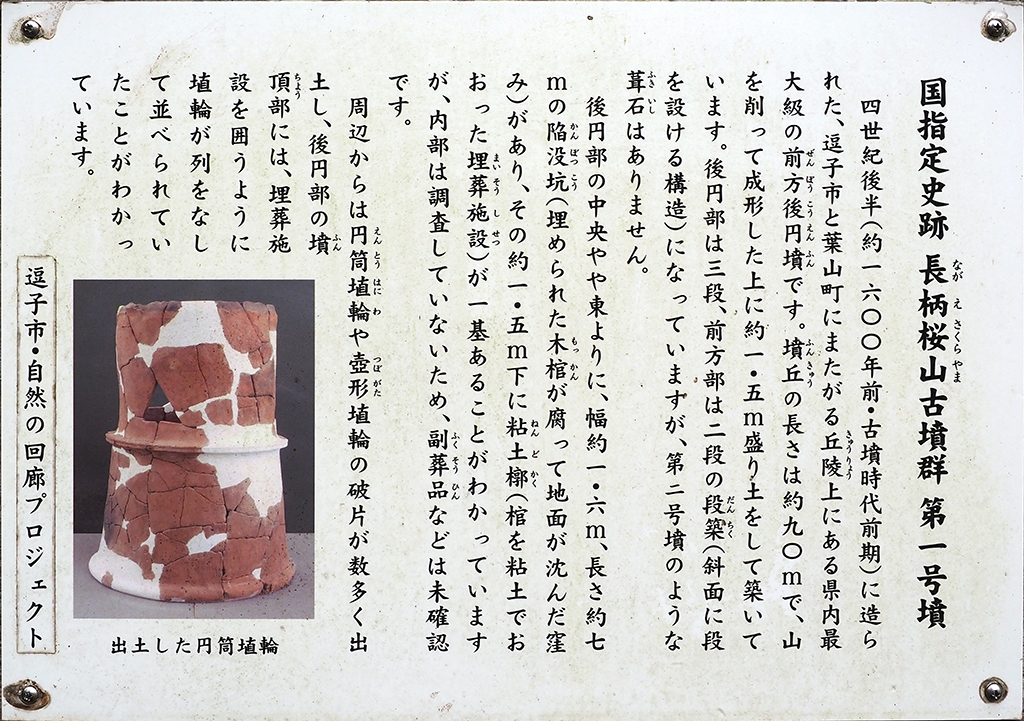 国指定史跡 長柄桜山古墳群 第一号墳
四世紀後半(約一六〇〇年前・古墳時代前期)に造ら
れた、逗子市と葉山町にまたがる丘陵上にある県内最
大級の前方後円墳です。墳丘の長さは約九〇mで、山
を削って成形した上に約一・五m盛り土をして築いて
います。後円部は三段、前方部は二段の段築(斜面に段
を設ける構造)になっていますが、第二号墳のような
葺石はありません。
後円部の中央やや東よりに、幅約一・六m、長さ約七
mの陥没坑(埋められた木棺が腐って地面が沈んだ窪
み)があり、その約一・五m下に粘土槨(棺を粘土でお
おった埋葬施設)が一基あることがわかっています
が、内部は調査していないため、副葬品などは未確認
です。
周辺からは円筒埴輪や壺形埴輪の破片が数多く出
土し、後円部の墳
頂部には、埋葬施
設を囲うように
埴輪が列をなし
て並べられてい
たことがわかっ
ています。
出土した円筒埴輪
逗子市・自然の回廊プロジェクト